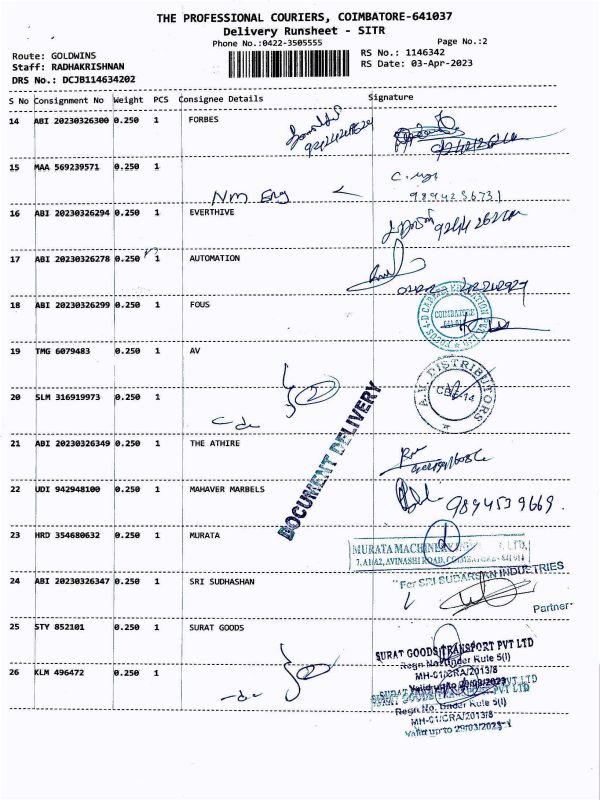 THE PROFESSIONAL COURIERS, COIMBATORE-641037
Delivery Runsheet - SITR
Phone No.:0422-3505555
Page No.:2
Route: GOLDWINS
RS No.: 1146342
Staff: RADHAKRISHNAN
RS Date: 03-Apr-2023
DRS No.: DCJB114634202
S No Consignment No Weight PCS Consignee Details Signature
14 ABI 20230326300 0.250 1 FORBES
15 MAA 569239571 0.250 1
Nm Eng
9894256731
16 ABI 20230326294 0.250 1 EVERTHIVE
17 ABI 20230326278 0.250 1 AUTOMATION
18 ABI 20230326299 0.250 1 FOUS
COIMBATORE
19 TMG 6079483 0.250 1 AV
A.V. DISTRIBUTORS
CBE-14
20 SLM 316919973 0.250 1
2
DOCUMENT DELIVERY
21 ABI 20230326349 0.250 1 THE ATHIRE
22 UDI 942948100 0.250 1 MAHAVER MARBELS
9894539669.
23 HRD 354680632 0.250 1 MURATA
MURATA MACHINERY LTD.,
AVINASHI ROAD, COIMBATORE
24 ABI 20230326347 0.250 1 SRI SUDHASHAN
For SRI SUDARSAN INDUSTRIES
Partner
25 STY 852101 0.250 1 SURAT GOODS
SURAT GOODS TRANSPORT PVT LTD
Regn No. Under Rule 5(I)
MH-01/CRA/2013/8
26 KLM 496472 0.250 1
2
SURAT GOODS TRANSPORT PVT LTD
Regn No. Under Rule 5(I)
MH-01/CRA/2013/8
Valid up to 29/03/2023